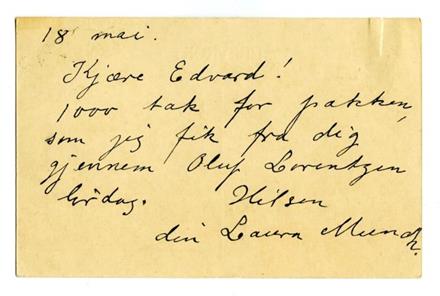 18 mai.
Kjære Edvard!
1000 tak for pakken,
som jeg fik fra dig
gjennem Oluf Lorentzen
lørdag. Hilsen
din Laura Munch.